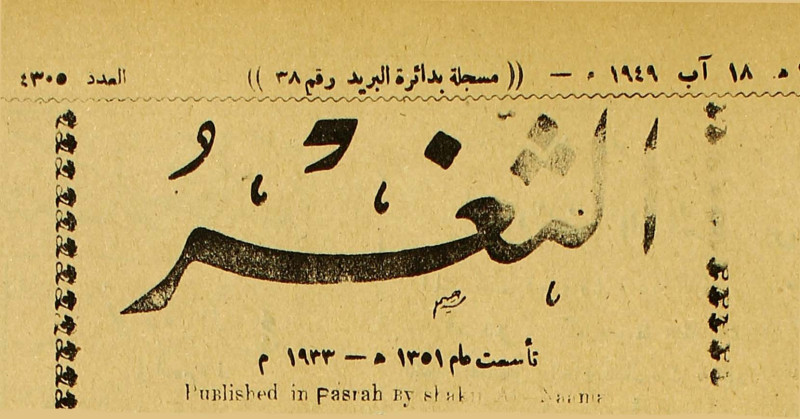 ه ١٨ آب ١٩٤٩ م — (( مسجلة بدائرة البريد رقم ٣٨ )) العدد ٤٣٠٥
الثغر
تأسست عام ١٣٥١ ه — ١٩٣٣ م
Published in Basrah By